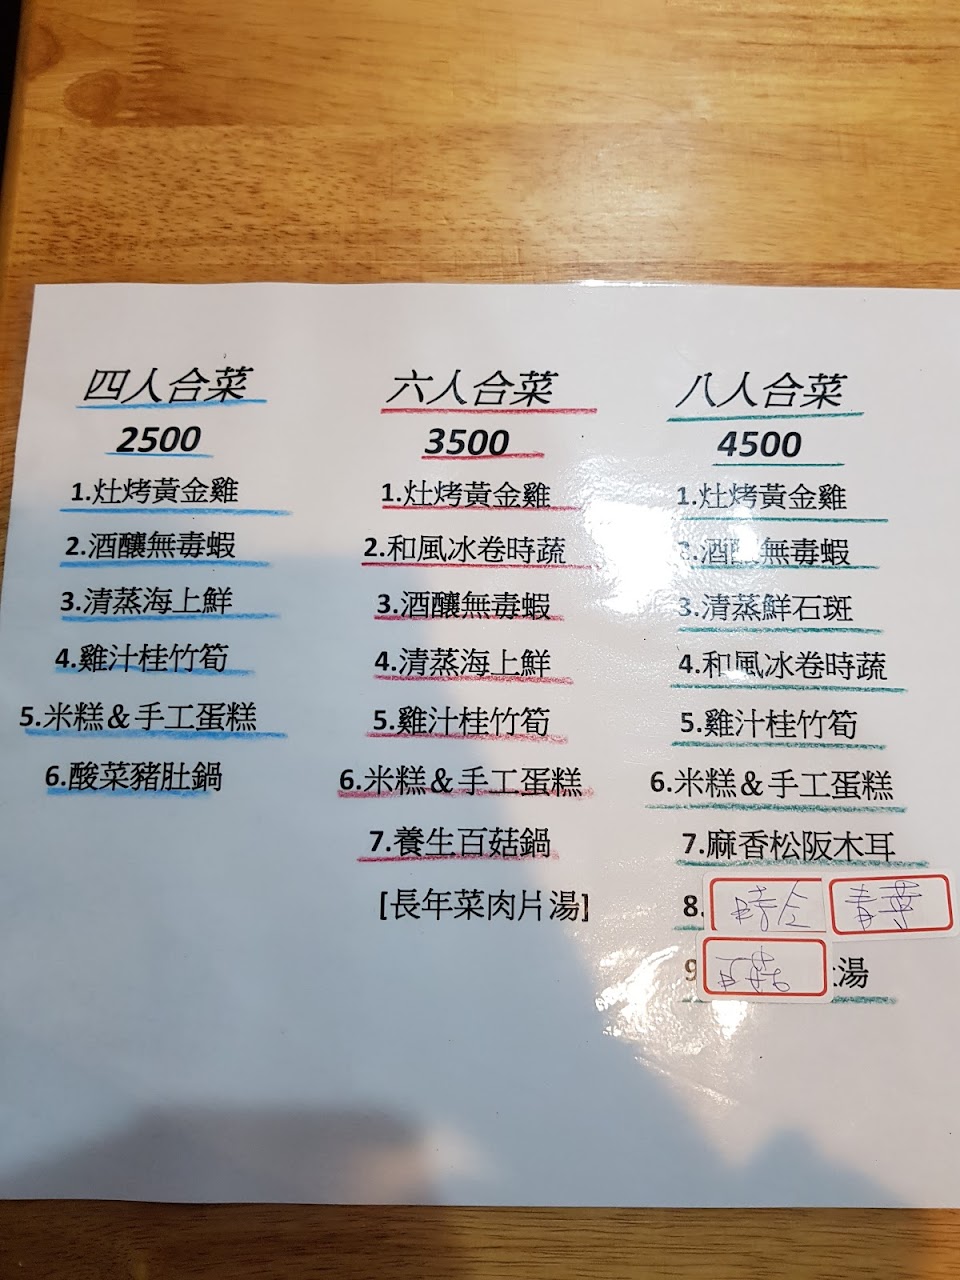 四人合菜
2500
1.灶烤黃金雞
2.酒釀無毒蝦
3.清蒸海上鮮
4.雞汁桂竹筍
5.米糕&手工蛋糕
6.酸菜豬肚鍋
六人合菜
3500
1.灶烤黃金雞
2.和風冰卷時蔬
3.酒釀無毒蝦
4.清蒸海上鮮
5.雞汁桂竹筍
6.米糕&手工蛋糕
7.養生百菇鍋
[長年菜肉片湯]
八人合菜
4500
1.灶烤黃金雞
2.酒釀無毒蝦
3.清蒸鮮石斑
4.和風冰卷時蔬
5.雞汁桂竹筍
6.米糕&手工蛋糕
7.麻香松阪木耳
8.時令青菜
9百菇湯